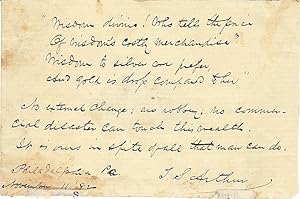 "Wisdom divine! Who tells the price
Of wisdom's costly merchandise"
Wisdom to silver we prefer
And gold is dross compared to her"
No external change; no robber; no commer-
cial disaster can touch this wealth.
It is ours in spite of all that man can do.
Philadelphia Pa
November 11. 82
T. S. Arthur